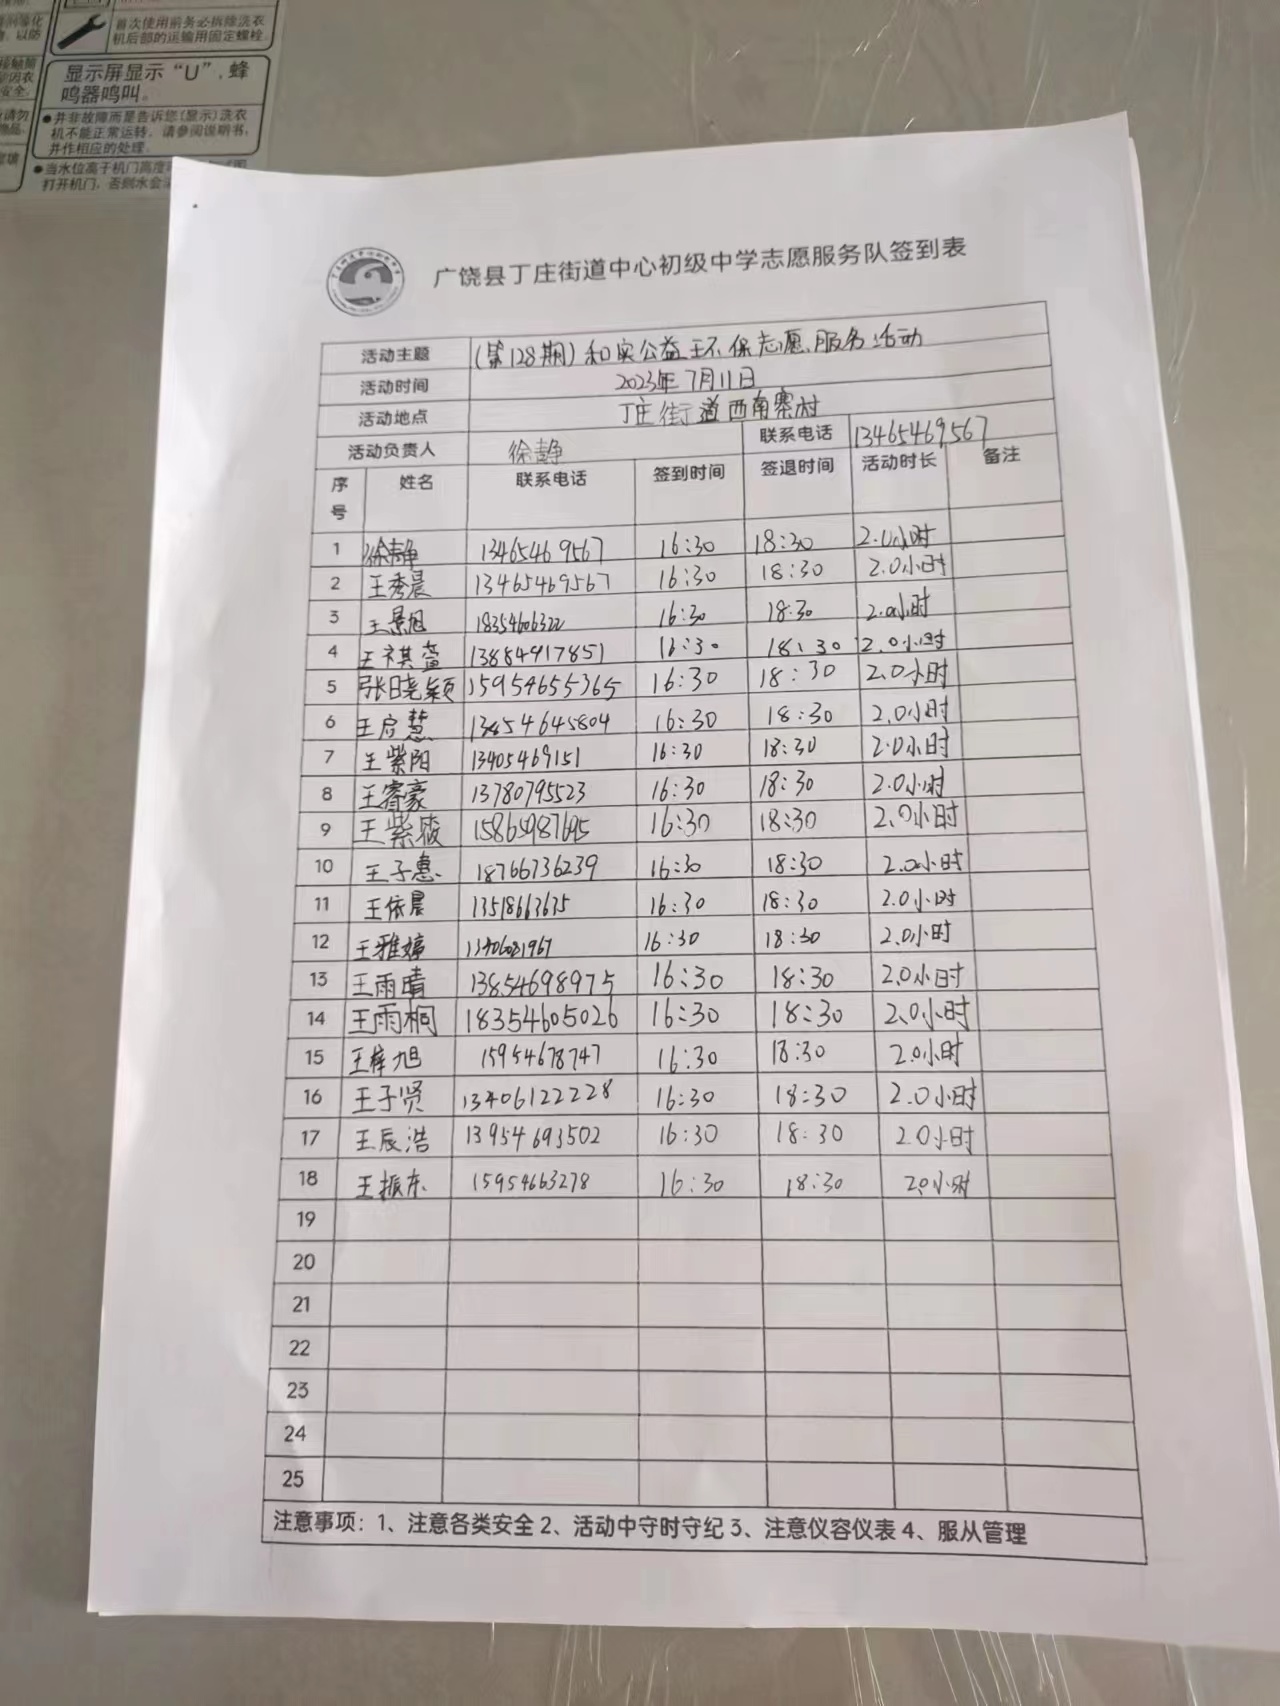 首次使用前务必拆除洗衣
机后部的运输用固定螺栓.
显示屏显示“U”,蜂
鸣器鸣叫。
●并非故障而是告诉您(显示)洗衣
机不能正常运转，请参阅说明书,
并作相应的处理.
●当水位高于机门高度
打开机门，否则水会
广饶县丁庄街道中心初级中学志愿服务队签到表
活动主题 (第128期)和实公益环保志愿服务活动
活动时间 2023年7月11日
活动地点 丁庄街道西南寨村
活动负责人 徐静 联系电话 13465469567
序号 姓名 联系电话 签到时间 签退时间 活动时长 备注
1 徐静 13465469567 16:30 18:30 2.0小时
2 王秀晨 13465469567 16:30 18:30 2.0小时
3 王景旭 18354606322 16:30 18:30 2.0小时
4 王祺萱 13884917851 16:30 18:30 2.0小时
5 张晓颖 15954655365 16:30 18:30 2.0小时
6 王启慧 13854645804 16:30 18:30 2.0小时
7 王紫阳 13405469151 16:30 18:30 2.0小时
8 王睿豪 13780795523 16:30 18:30 2.0小时
9 王紫筱 15865987695 16:30 18:30 2.0小时
10 王子惠 18766736239 16:30 18:30 2.0小时
11 王依晨 13518663635 16:30 18:30 2.0小时
12 王雅婷 16:30 18:30 2.0小时
13 王雨晴 13854698975 16:30 18:30 2.0小时
14 王雨桐 18354605026 16:30 18:30 2.0小时
15 王梓旭 15954678747 16:30 18:30 2.0小时
16 王子贤 13406122228 16:30 18:30 2.0小时
17 王辰浩 13954693502 16:30 18:30 2.0小时
18 王振东 15954663278 16:30 18:30 2.0小时
19
20
21
22
23
24
25
注意事项：1、注意各类安全 2、活动中守时守纪 3、注意仪容仪表 4、服从管理